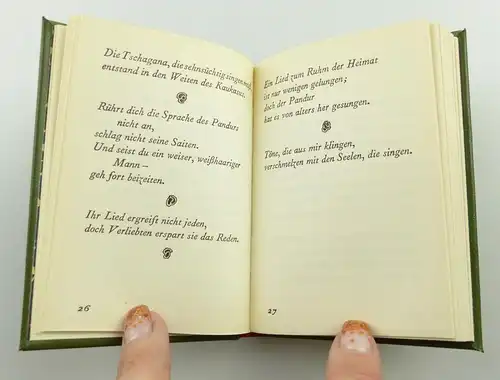 Die Tschagana, die sehnsüchtig singen muß,
entstand in den Weiten des Kaukasus.
Rührt dich die Sprache des Pandurs
nicht an,
schlag nicht seine Saiten.
Und seist du ein weiser, weißhaariger
Mann—
geh fort beizeiten.
Ihr Lied ergreift nicht jeden,
doch Verliebten erspart sie das Reden.
26
Ein Lied zum Ruhm der Heimat
ist nur wenigen gelungen;
doch der Pandur
hat es von alters her gesungen.
Töne, die aus mir klingen,
verschmelzen mit den Seelen, die singen.
27